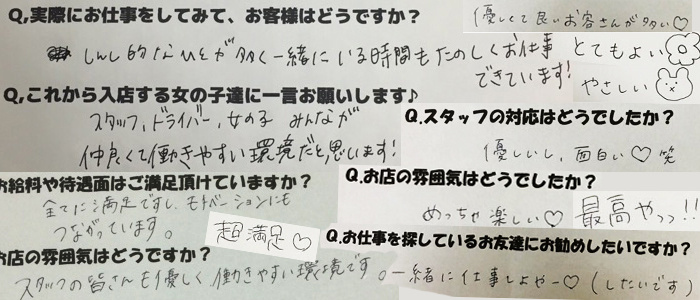 Q,実際にお仕事をしてみて、お客様はどうですか？
優しくて良いお客さんが多い♡
しんし的なひとが多く一緒にいる時間もたのしくお仕事
できています!
とてもよい
やさしい
Q,これから入店する女の子達に一言お願いします♪
スタッフ、ドライバー、女の子 みんなが
仲良くて働きやすい環境だと思います!
Q.スタッフの対応はどうでしたか？
優しいし、面白い♡笑
お給料や待遇面はご満足頂けていますか？
全てに満足ですし、モチベーションにも
つながっています。
超満足♡
Q.お店の雰囲気はどうでしたか？
めっちゃ楽しい♡
最高やっっ!!
お店の雰囲気はどうですか？
スタッフの皆さんも優しく働きやすい環境です。
Q.お仕事を探しているお友達にお勧めしたいですか？
一緒に仕事しよや〜♡(したいです)